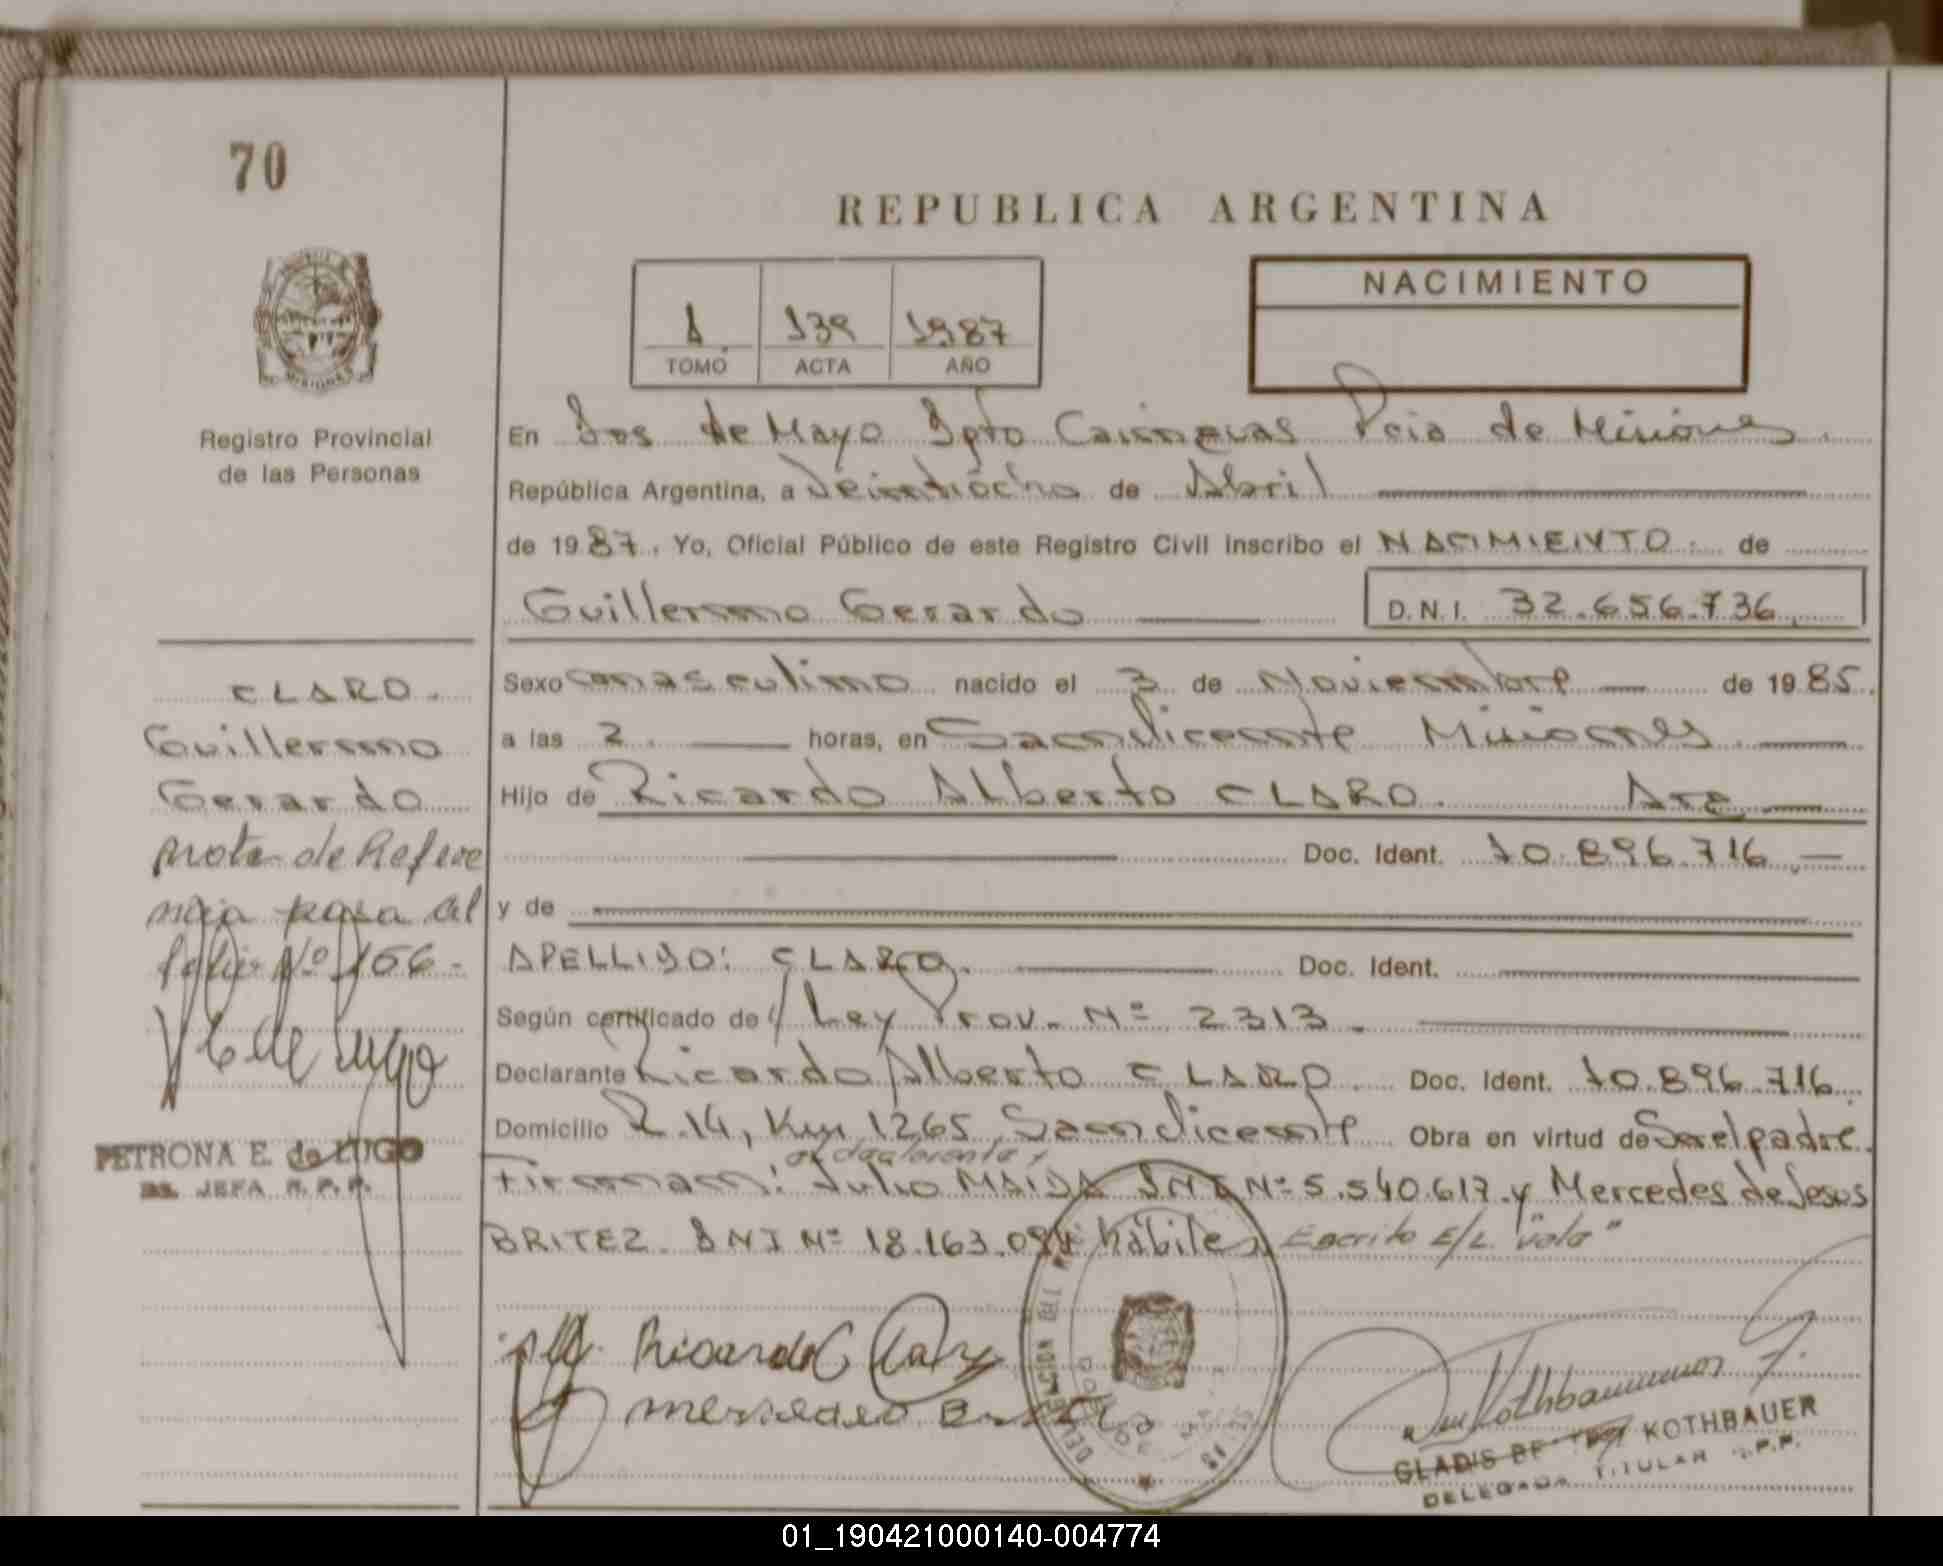 70
REPUBLICA ARGENTINA
NACIMIENTO
1 139 1987
TOMO ACTA AÑO
Registro Provincial
de las Personas
En Dos de Mayo Dpto Cainguas Pcia de Misiones
República Argentina, a Veintiocho de Abril
de 1987. Yo, Oficial Público de este Registro Civil inscribo el NACIMIENTO. de
Guillermo Gerardo D.N.I. 32.656.736
CLARO.
Guillermo
Gerardo
nota de Refere
ncia para al
folio Nº 156-
PETRONA E. de LUGO
JEFA R.P.P.
Sexo masculino nacido el 3 de Noviembre de 1985.
a las 2. horas, en San Vicente Misiones.
Hijo de Ricardo Alberto CLARO. Arg
Doc. Ident. 10.896.716
y de
APELLIDO: CLARO. Doc. Ident.
Según certificado de Ley Prov. Nº 2313.
Declarante Ricardo Alberto CLARO. Doc. Ident. 10.896.716
Domicilio R.14, Km 1265, San Vicente Obra en virtud de Ser el padre.
el declarante y
Firman: Julio MAIDA DNI Nº 5.540.617 y Mercedes de Jesus
BRITEZ. DNI Nº 18.163.094 hábiles Escrito E/L "vale"
Ricardo Claro
Kothbauer
GLADIS KOTHBAUER
DELEGADA TITULAR R.P.P.
01_190421000140-004774